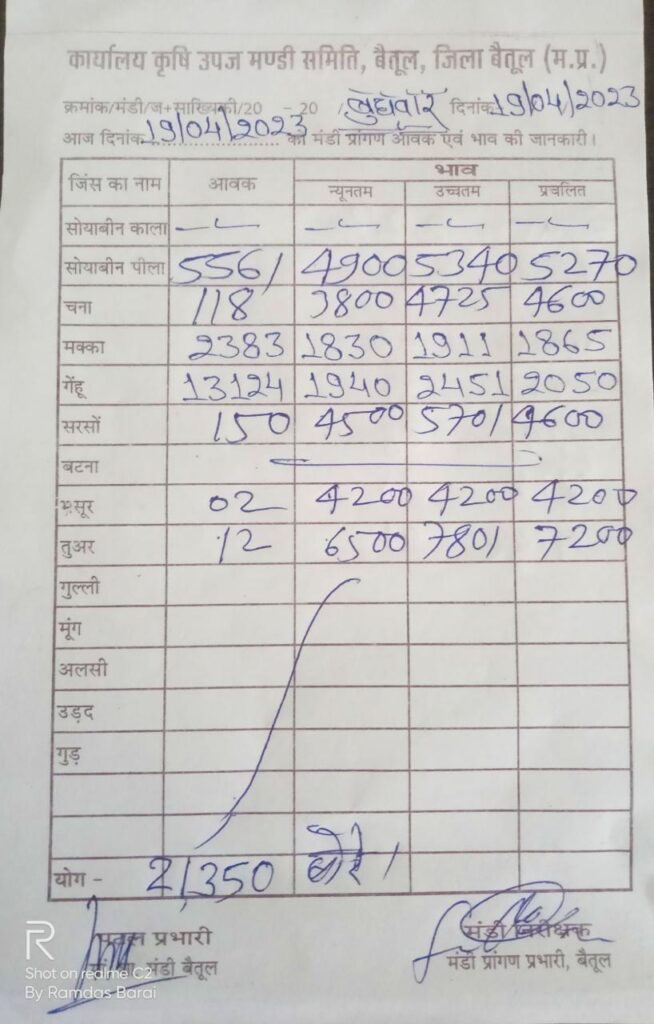 कार्यालय कृषि उपज मण्डी समिति, बैतूल, जिला बैतूल (म.प्र.)
क्रमांक/मंडी/ज+सांख्यिकी/20 - 20 / बुधवार दिनांक 19/04/2023
आज दिनांक 19/04/2023 को मंडी प्रांगण आवक एवं भाव की जानकारी।
जिंस का नाम आवक भाव
न्यूनतम उच्चतम प्रचलित
सोयाबीन काला
सोयाबीन पीला 5561 4900 5340 5270
चना 118 3800 4725 4600
मक्का 2383 1830 1911 1865
गेंहू 13124 1940 2451 2050
सरसों 150 4500 5701 4600
बटना
मसूर 02 4200 4200 4200
तुअर 12 6500 7801 7200
गुल्ली
मूंग
अलसी
उड़द
गुड़
योग - 21,350 बोरे।
प्रभारी
मंडी बैतूल
मंडी निरीक्षक
मंडी प्रांगण प्रभारी, बैतूल
R
Shot on realme C2
By Ramdas Barai